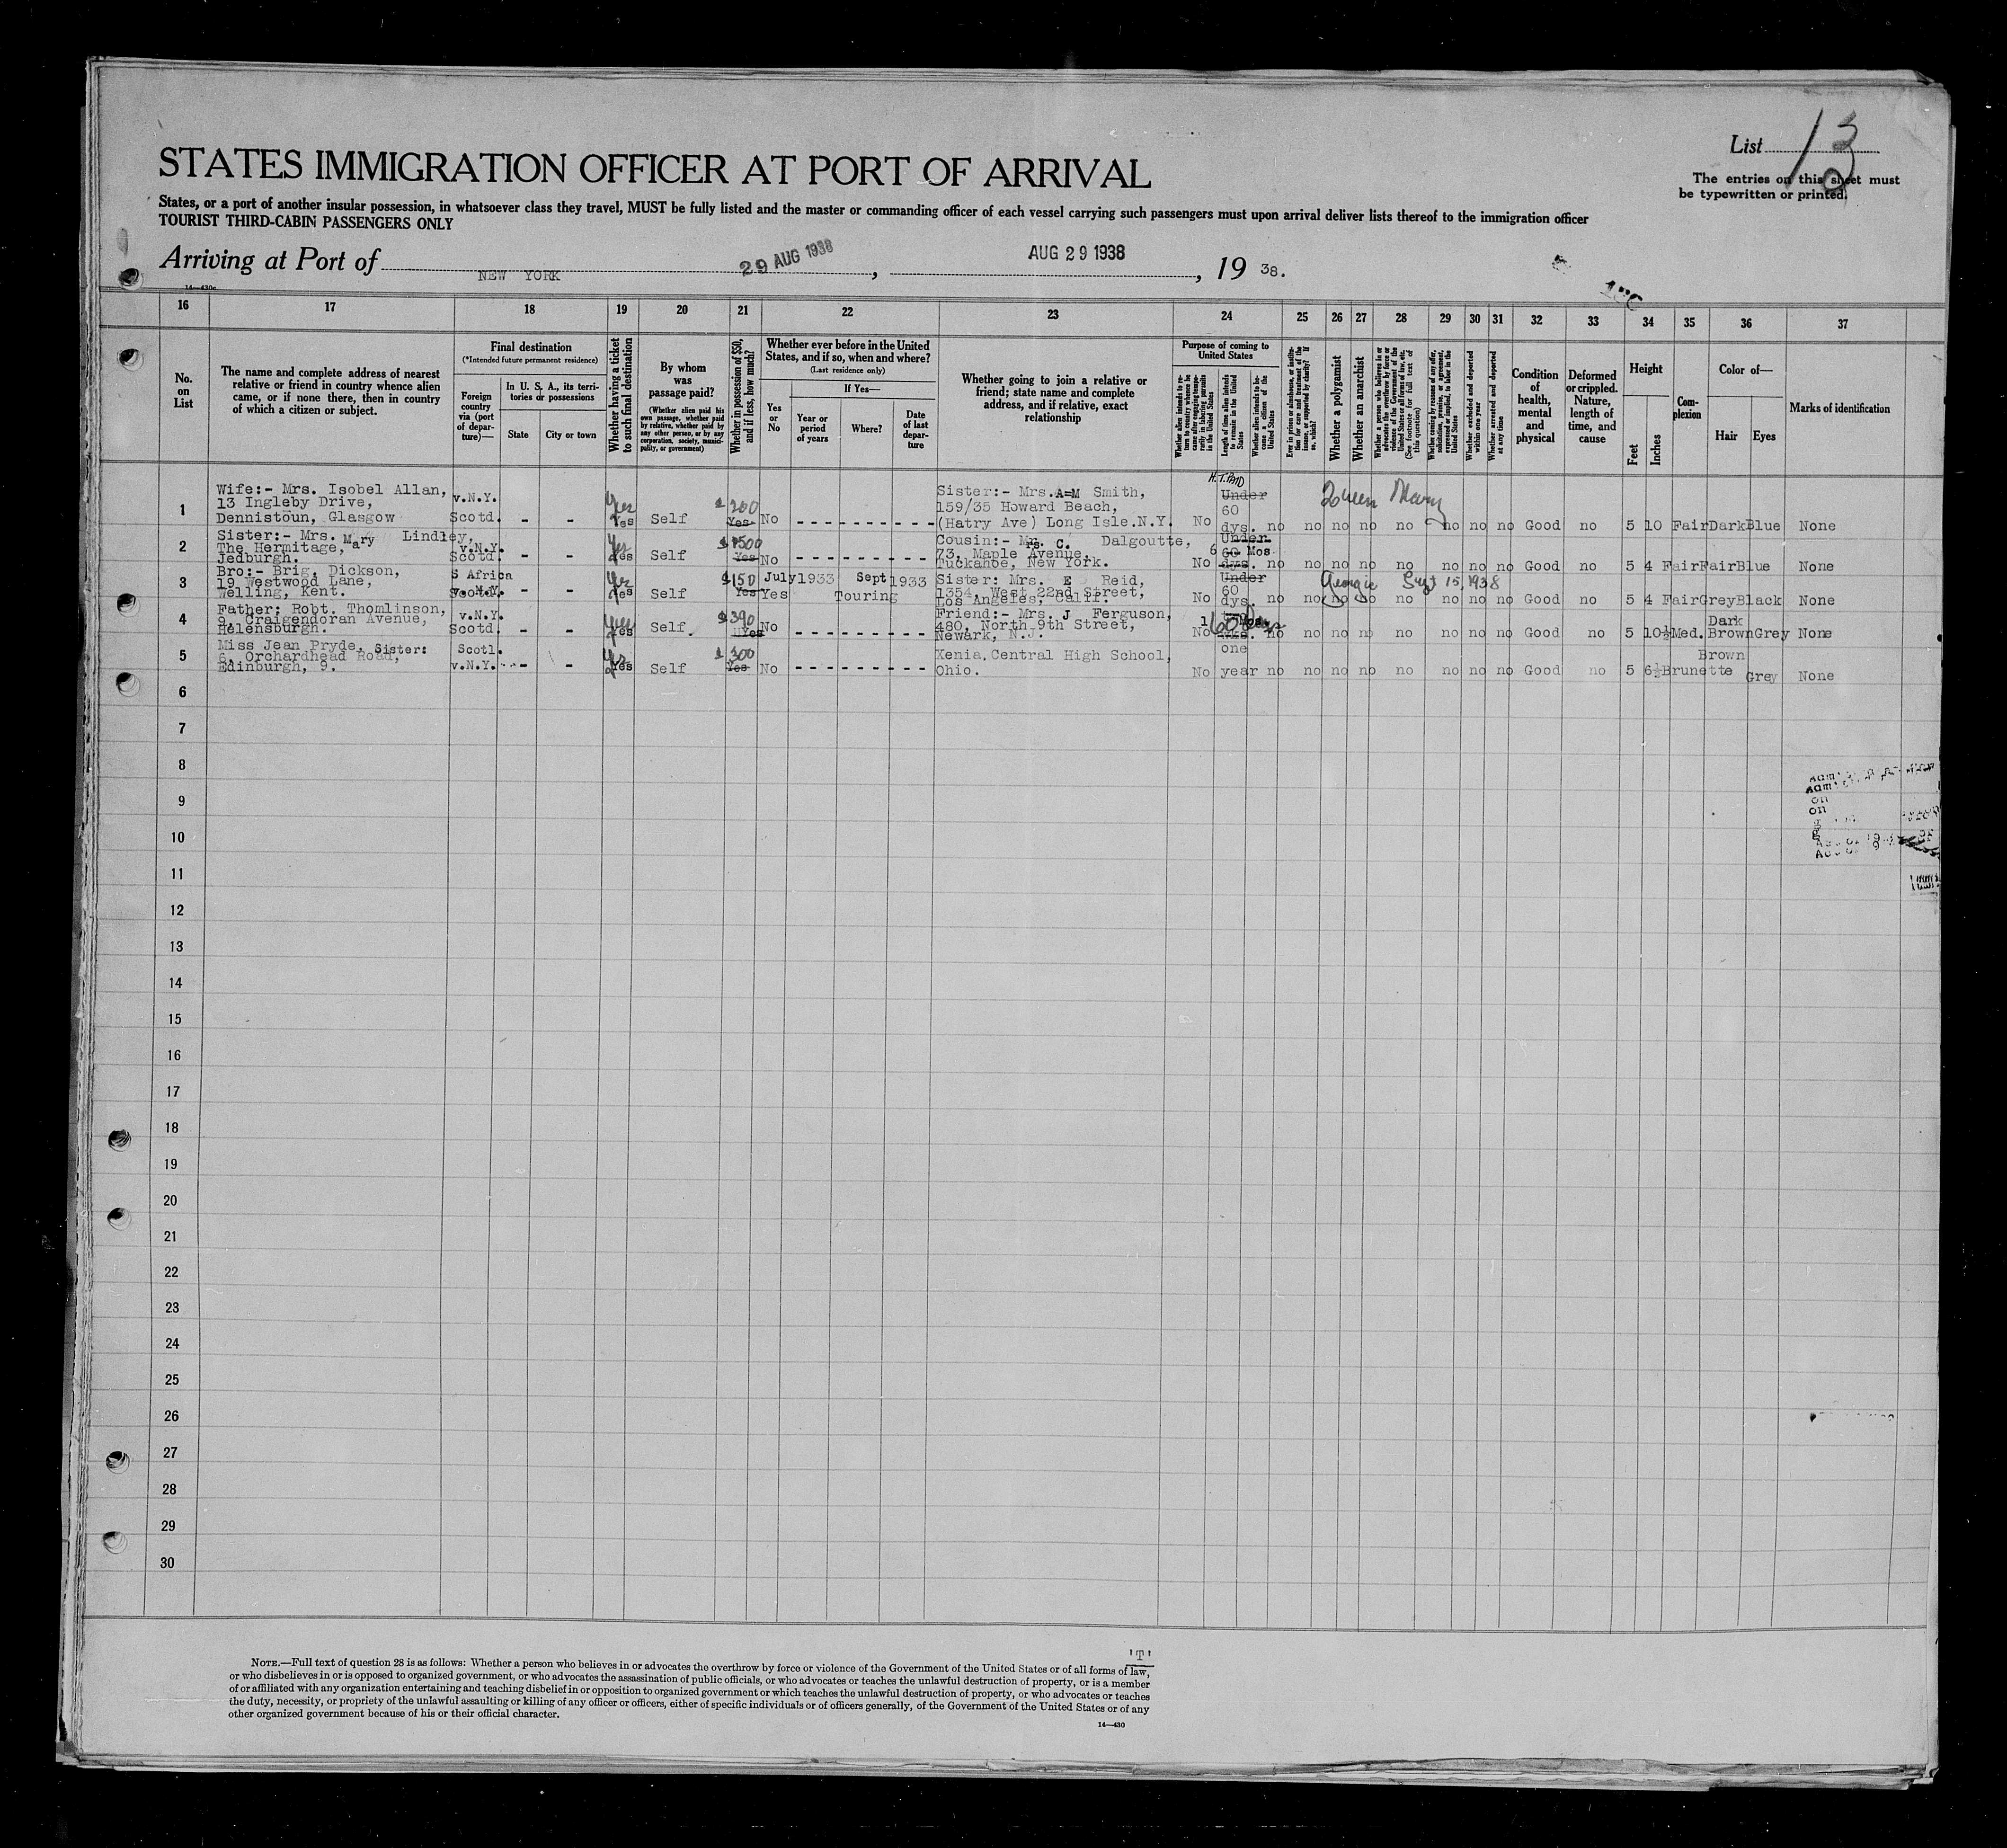 List 13
STATES IMMIGRATION OFFICER AT PORT OF ARRIVAL
The entries on this sheet must
be typewritten or printed.
States, or a port of another insular possession, in whatsoever class they travel, MUST be fully listed and the master or commanding officer of each vessel carrying such passengers must upon arrival deliver lists thereof to the immigration officer
TOURIST THIRD-CABIN PASSENGERS ONLY
Arriving at Port of NEW YORK 29 AUG 1938, AUG 29 1938, 19 38.
14—430
16 17 18 19 20 21 22 23 24 25 26 27 28 29 30 31 32 33 34 35 36 37
No.
on
List
The name and complete address of nearest
relative or friend in country whence alien
came, or if none there, then in country
of which a citizen or subject.
Final destination
(*Intended future permanent residence)
Foreign
country
via (port
of depar-
ture)—
In U. S. A., its terri-
tories or possessions
State
City or town
Whether having a ticket
to such final destination
By whom
was
passage paid?
(Whether alien paid his
own passage, whether paid
by relative, whether paid
by any other person, or by any
corporation, society, munici-
pality, or government)
Whether in possession of $50,
and if less, how much?
Whether ever before in the United
States, and if so, when and where?
(Last residence only)
Yes
or
No
If Yes—
Year or
period
of years
Where?
Date
of last
depar-
ture
Whether going to join a relative or
friend; state name and complete
address, and if relative, exact
relationship
Purpose of coming to
United States
Whether alien intends to re-
turn to country whence he
came after engaging tempo-
rarily in laboring pursuits
in the United States
Length of time alien intends
to remain in the United
States
Whether alien intends to be-
come a citizen of the
United States
Ever in prison or almshouse, or institu-
tion for care and treatment of the
insane, or supported by charity? If
so, which?
Whether a polygamist
Whether an anarchist
Whether a person who believes in or
advocates the overthrow by force or
violence of the Government of the
United States or all forms of law, etc.
(See footnote for full text of
this question)
Whether coming by reason of any offer,
solicitation, promise, or agreement,
expressed or implied, to labor in the
United States
Whether excluded and deported
within one year
Whether arrested and deported
at any time
Condition
of
health,
mental
and
physical
Deformed
or crippled.
Nature,
length of
time, and
cause
Height
Feet
Inches
Com-
plexion
Color of—
Hair
Eyes
Marks of identification
1
Wife:- Mrs. Isobel Allan,
13 Ingleby Drive,
Dennistoun, Glasgow
v.N.Y.
Scotd. - - Yes Yes Self $ 200 Yes No
Sister:- Mrs. A=M Smith,
159/35 Howard Beach,
(Hatry Ave) Long Isle.N.Y.
H.T. PAID
No Under 60 dys. no no no no no no no no Good no 5 10 Fair Dark Blue None
Queen Mary
2
Sister:- Mrs. Mary Lindley,
The Hermitage,
Jedburgh.
v.N.Y.
Scotd. - - Yes Yes Self $ 1500 Yes No
Cousin:- Mrs. C. Dalgoutte,
73, Maple Avenue,
Tuckahoe, New York.
No Under 60 dys. 6 Mos no no no no no no no no Good no 5 4 Fair Fair Blue None
3
Bro:- Brig. Dickson,
19 Westwood Lane,
Welling, Kent.
S Africa
v.N.Y. - - Yes Yes Self $150 Yes Yes July 1933 Touring Sept 1933
Sister: Mrs. E Reid,
1354, West 22nd Street,
Los Angeles, Calif.
No Under 60 dys. no no no no no no no no Good no 5 4 Fair Grey Black None
Georgic Sept 15, 1938
4
Father: Robt. Thomlinson,
9, Craigendoran Avenue,
Helensburgh.
v.N.Y.
Scotd. - - Yes Yes Self. $390 Yes No
Friend:- Mrs. J Ferguson,
480, North 9th Street,
Newark, N.J.
No 60 Days no no no no no no no no Good no 5 10½ Med. Dark Brown Grey None
5
Miss Jean Pryde, Sister:
6, Orchardhead Road,
Edinburgh, 9.
Scotl.
v.N.Y. - - Yes Yes Self $ 300 Yes No
Xenia, Central High School,
Ohio.
No one year no no no no no no no no Good no 5 6½ Brunette Brown Grey None
6
7
8
9
10
11
12
13
14
15
16
17
18
19
20
21
22
23
24
25
26
27
28
29
30
'T'
NOTE.—Full text of question 28 is as follows: Whether a person who believes in or advocates the overthrow by force or violence of the Government of the United States or of all forms of law,
or who disbelieves in or is opposed to organized government, or who advocates the assassination of public officials, or who advocates or teaches the unlawful destruction of property, or is a member
of or affiliated with any organization entertaining and teaching disbelief in or opposition to organized government or which teaches the unlawful destruction of property, or who advocates or teaches
the duty, necessity, or propriety of the unlawful assaulting or killing of any officer or officers, either of specific individuals or of officers generally, of the Government of the United States or of any
other organized government because of his or their official character.
14—430